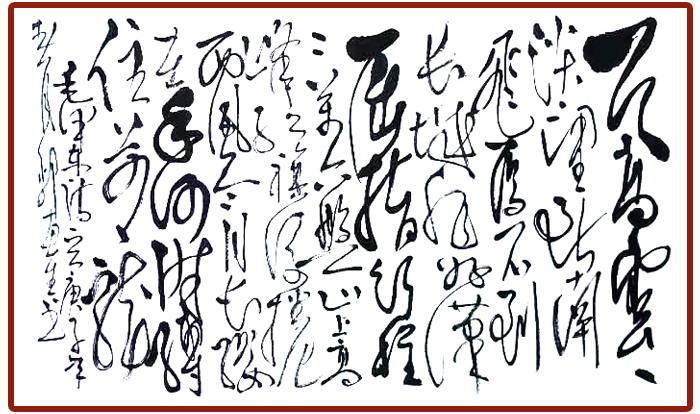 天高雲
淡望断南
飛雁不到
长城非好漢
屈指行程
二萬六盤山上高
峰红旗漫捲
西風今日长缨
在手何时缚
住苍龙
毛泽东诗庚子年